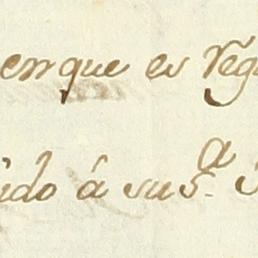 en que es reg
ido á su S.ª